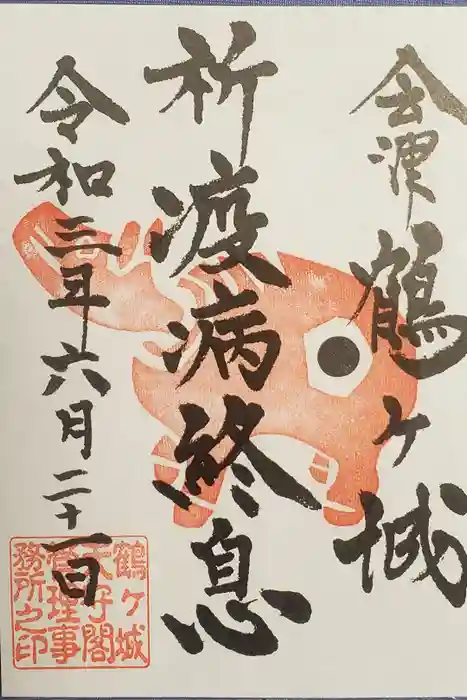 会津鶴ヶ城
祈疫病終息
令和三年六月二十一日
鶴ヶ城
天守閣
管理事
務所之印